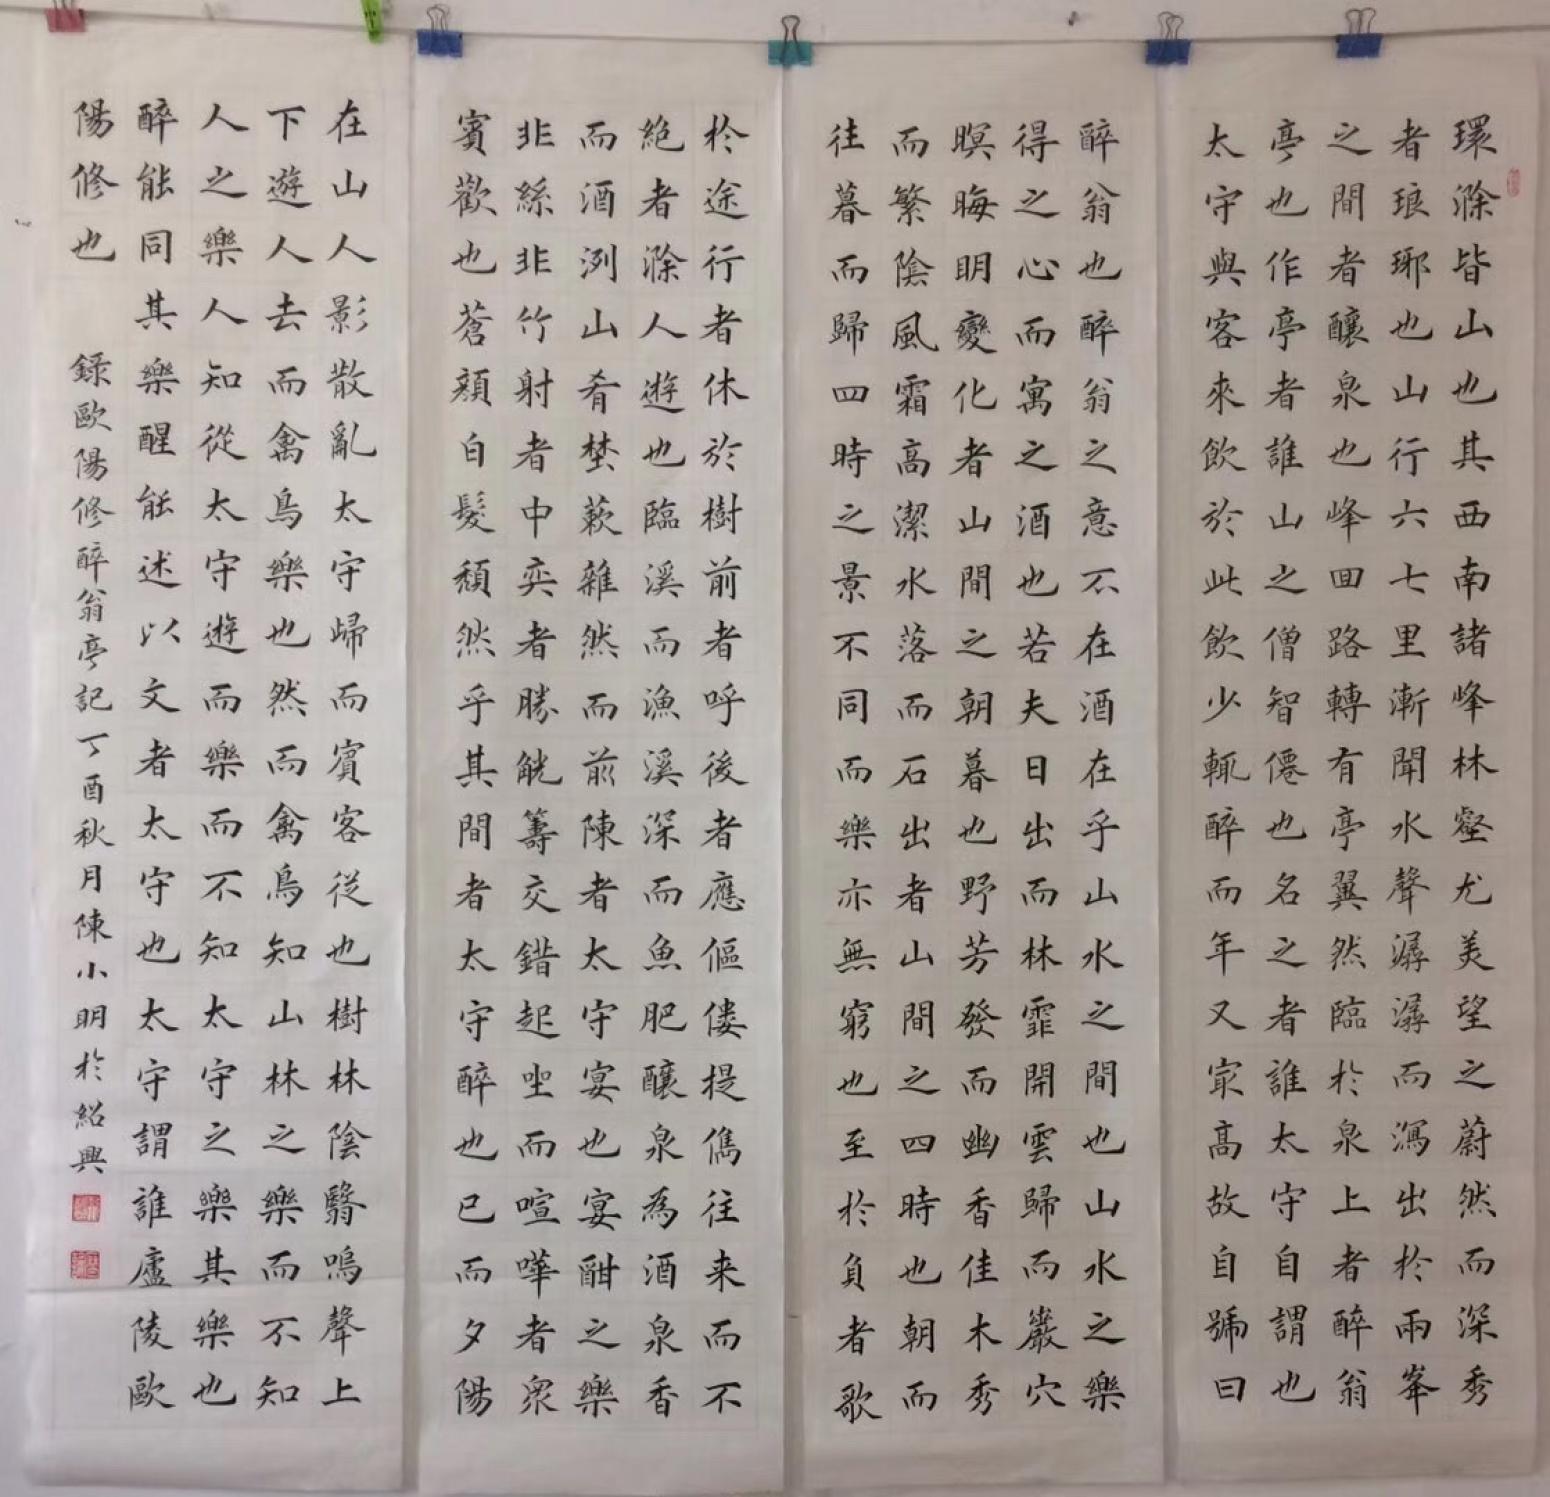 環滁皆山也其西南諸峰林壑尤美望之蔚然而深秀
者琅琊也山行六七里漸聞水聲潺潺而瀉出於兩峯
之間者釀泉也峰回路轉有亭翼然臨於泉上者醉翁
亭也作亭者誰山之僧智僊也名之者誰太守自謂也
太守與客來飲於此飲少輒醉而年又冣高故自號曰
醉翁也醉翁之意不在酒在乎山水之間也山水之樂
得之心而寓之酒也若夫日出而林霏開雲歸而巖穴
暝晦明變化者山間之朝暮也野芳發而幽香佳木秀
而繁陰風霜高潔水落而石出者山間之四時也朝而
往暮而歸四時之景不同而樂亦無窮也至於負者歌
於途行者休於樹前者呼後者應傴僂提儁往来而不
絕者滁人遊也臨溪而漁溪深而魚肥釀泉為酒泉香
而酒洌山肴埜蔌雜然而前陳者太守宴也宴酣之樂
非絲非竹射者中弈者勝觥籌交錯起坐而喧嘩者眾
賓歡也蒼顏白髮頹然乎其間者太守醉也已而夕陽
在山人影散亂太守歸而賓客從也樹林陰翳鳴聲上
下遊人去而禽鳥樂也然而禽鳥知山林之樂而不知
人之樂人知從太守遊而樂而不知太守之樂其樂也
醉能同其樂醒能述以文者太守也太守謂誰廬陵歐
陽修也 錄歐陽修醉翁亭記丁酉秋月陳小明於紹興